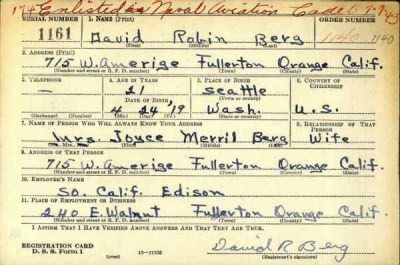 174 Enlisted as Naval Aviation Cadet 5-7-43
SERIAL NUMBER 1. NAME (Print) ORDER NUMBER
1161 David Robin Berg 1140 1140
(First) (Middle) (Last)
2. ADDRESS (Print)
715 W. Amerige Fullerton Orange Calif.
(Number and street or R. F. D. number) (Town) (County) (State)
3. TELEPHONE 4. AGE IN YEARS 5. PLACE OF BIRTH 6. COUNTRY OF CITIZENSHIP
— 21 Seattle
DATE OF BIRTH (Town or county)
4 24 '19 Wash. U.S.
(Exchange) (Number) (Mo.) (Day) (Yr.) (State or country)
7. NAME OF PERSON WHO WILL ALWAYS KNOW YOUR ADDRESS 8. RELATIONSHIP OF THAT PERSON
Mrs. Joyce Merril Berg Wife
(Mr., Mrs., Miss) (First) (Middle) (Last)
9. ADDRESS OF THAT PERSON
715 W. Amerige Fullerton Orange Calif.
(Number and street or R. F. D. number) (Town) (County) (State)
10. EMPLOYER'S NAME
So. Calif. Edison
11. PLACE OF EMPLOYMENT OR BUSINESS
240 E. Walnut Fullerton Orange Calif.
(Number and street or R. F. D. number) (Town) (County) (State)
I AFFIRM THAT I HAVE VERIFIED ABOVE ANSWERS AND THAT THEY ARE TRUE.
REGISTRATION CARD
D. S. S. Form 1 16—17105 David R Berg
(Registrant's signature)